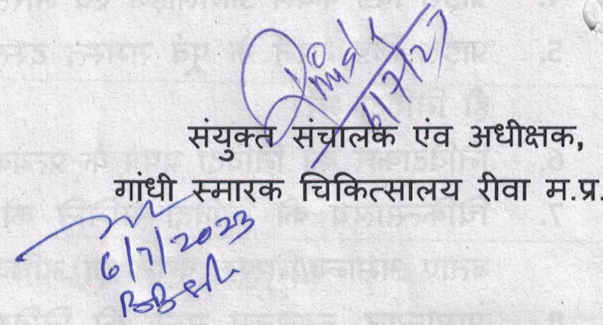 6/7/23
संयुक्त संचालक एंव अधीक्षक,
गांधी स्मारक चिकित्सालय रीवा म.प्र.
6/7/2023